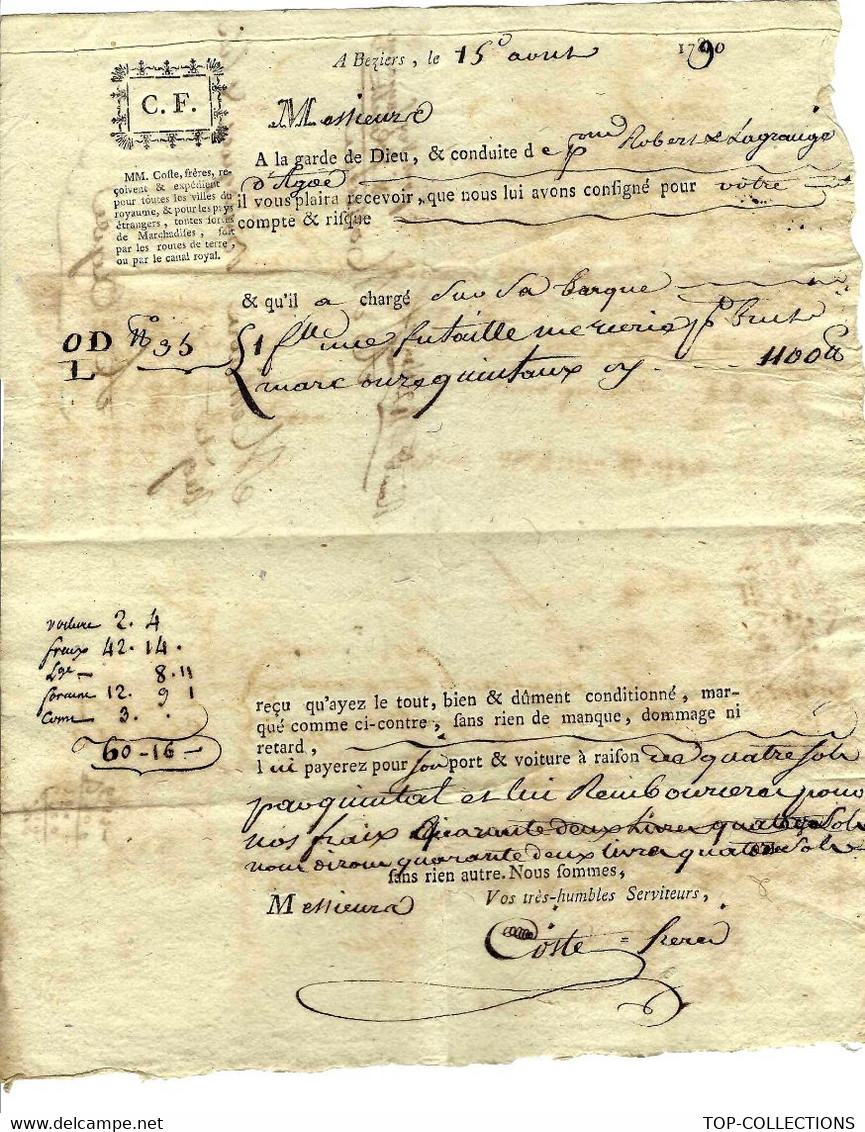 A Beziers, le 15º avril 1790
C. F.
Messieurs
A la garde de Dieu, & conduite de pon Robert & Lagrange
d'Agde
il vous plaira recevoir, que nous lui avons consigné pour votre
compte & risque
MM. Coste, freres, re-
çoivent & expédient
pour toutes les villes du
royaume, & pour les pays
étrangers, toutes sortes
de Marchadises, soit
par les routes de terre,
ou par le canal royal.
& qu'il a chargé sur sa barque
OD Nº 35 1 une futaille mercerie pt Brut
L marc onze quintaux 1100
voiture 2. 4
fraix 42. 14.
8. 11
foraine 12. 9 1
Com 3. .
60-16-
reçu qu'ayez le tout, bien & dûment conditionné, mar-
qué comme ci-contre, sans rien de manque, dommage ni
retard,
lui payerez pour son port & voiture à raison de quatre sols
par quintal et lui Rembourserez pour
nos fraix Quarante deux Livres quatorze Sols
nous disons quarante deux livres quatorze Sols
sans rien autre. Nous sommes,
Messieurs Vos très-humbles Serviteurs,
Coste freres
TOP-COLLECTIONS